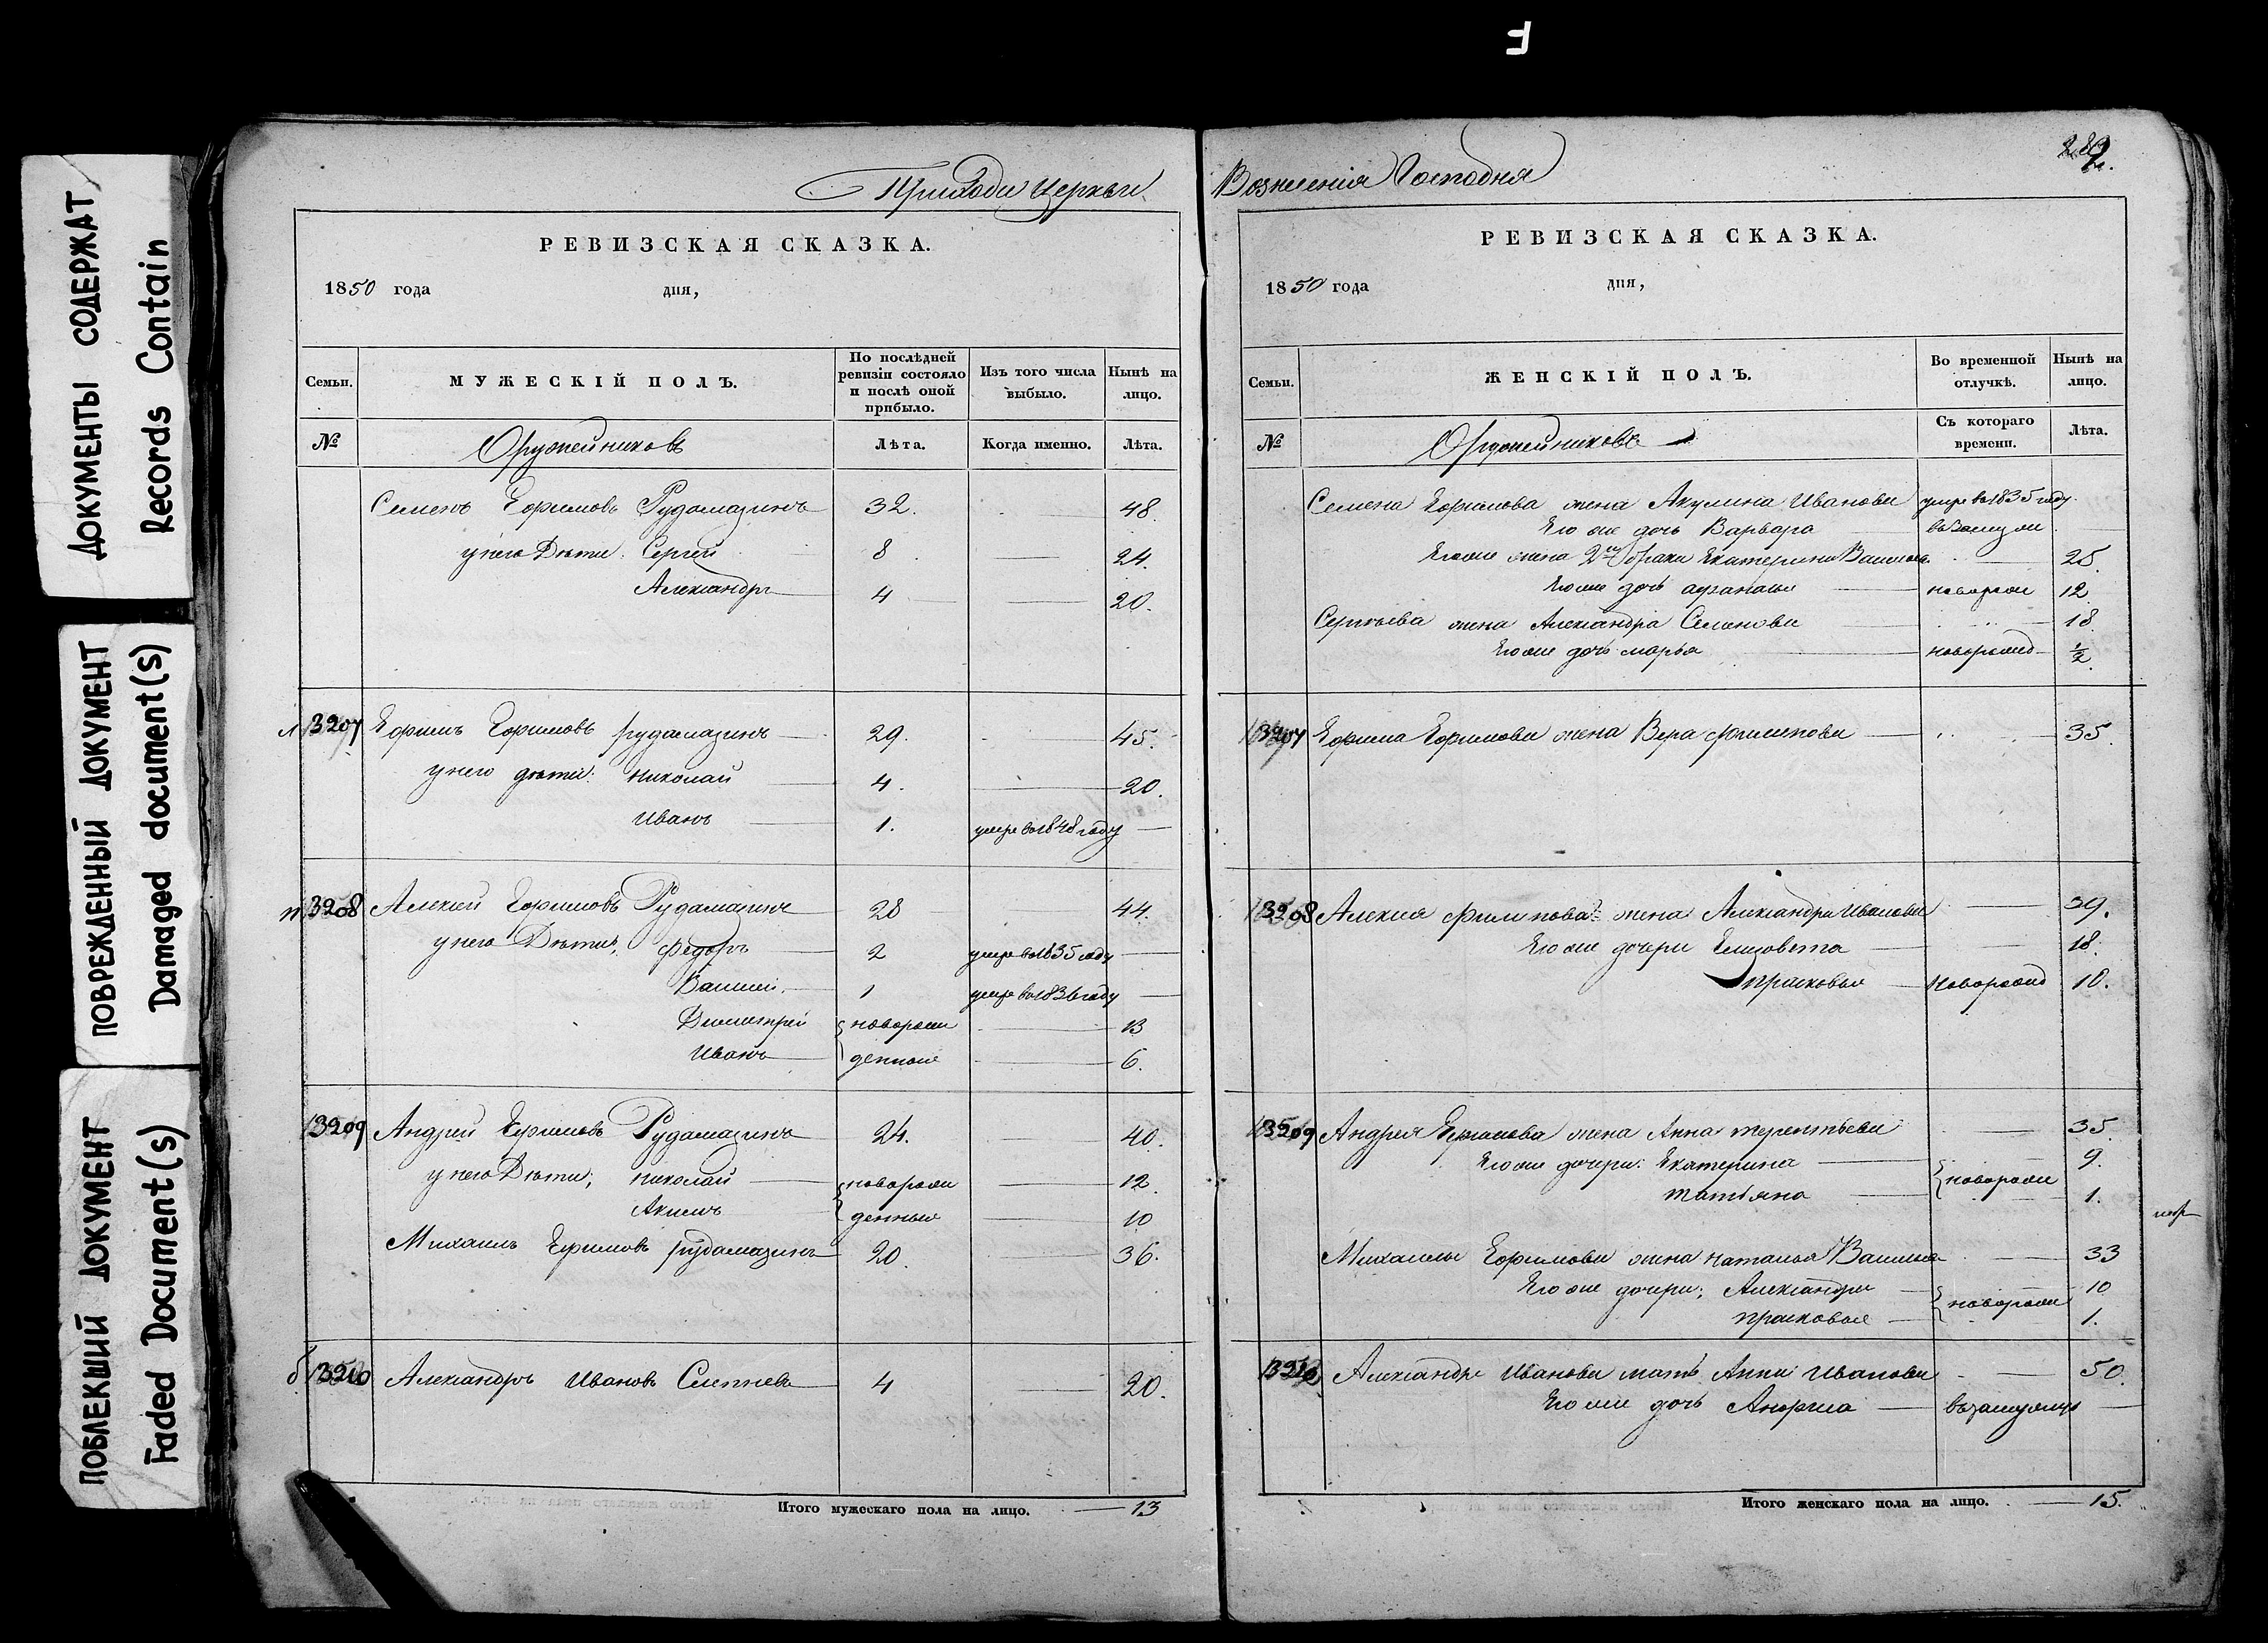 ДОКУМЕНТЫ СОДЕРЖАТ
Records Contain
ПОВРЕЖДЕННЫЙ ДОКУМЕНТ
Damaged document(s)
ПОБЛЕКШИЙ ДОКУМЕНТ
Faded Document(s)
Прихода Церкви
РЕВИЗСКАЯ СКАЗКА.
1850 года дня,
Семьи. МУЖЕСКІЙ ПОЛЪ. По послѣдней ревизіи состояло и послѣ оной прибыло. Изъ того числа выбыло. Нынѣ на лицо.
№ Оружейниковъ Лѣта. Когда именно. Лѣта.
Семенъ Ефимовъ Рудамазинъ 32. 48.
у него Дѣти: Сергей 8 24.
Александръ 4 20.
13207 Ефимъ Ефимовъ рудамазинъ 29. 45.
у него дѣти: николай 4. 20.
Иванъ 1. умре въ 1848 году
13208 Алексей Ефимовъ Рудамазинъ 28 44.
у него Дѣти: Федоръ 2 умре въ 1835 году
Василий 1 умре въ 1836 году
Димитрей новорож 13
Иванъ денные 6.
13209 Андрей Ефимовъ Рудамазинъ 24. 40.
у него Дѣти; николай новорож 12.
Акимъ денные 10
Михаилъ Ефимовъ рудамазинъ 20. 36.
13210 Александръ Ивановъ 4 20.
Итого мужескаго пола на лицо. 13
Вознесенія Господня
2.
РЕВИЗСКАЯ СКАЗКА.
1850 года дня,
Семьи. ЖЕНСКІЙ ПОЛЪ. Во временной отлучкѣ. Нынѣ на лицо.
№ Оружейниковъ Съ котораго времени. Лѣта.
Семена Ефимова жена Акулина Иванова умре въ 1835 году
Его же дочь Варвара въ замуж
Его же жена 2го брака Екатерина Васильев 25.
Его же дочь новорож 12
Сергѣева жена Александра Семенова 18
Его же дочь марья новорожд 1/2
13207 Ефима Ефимова жена Вера филипова 35.
13208 Алексея филипова жена Александра Иванова 39.
Его же дочери Елизовета 18.
прасковья Новорожд 10.
13209 Андрея Ефимова жена Анна терентьева 35
Его же дочери: Екатерина новорож 9.
татьяна 1.
Михаилы Ефимова жена наталья Васильев 33
Его же дочери; Александра новорож 10
прасковья 1.
13210 Александра Иванова мать Анна Иванова 50.
Его же дочь Анфиса въ замужеств
Итого женскаго пола на лицо. 15.